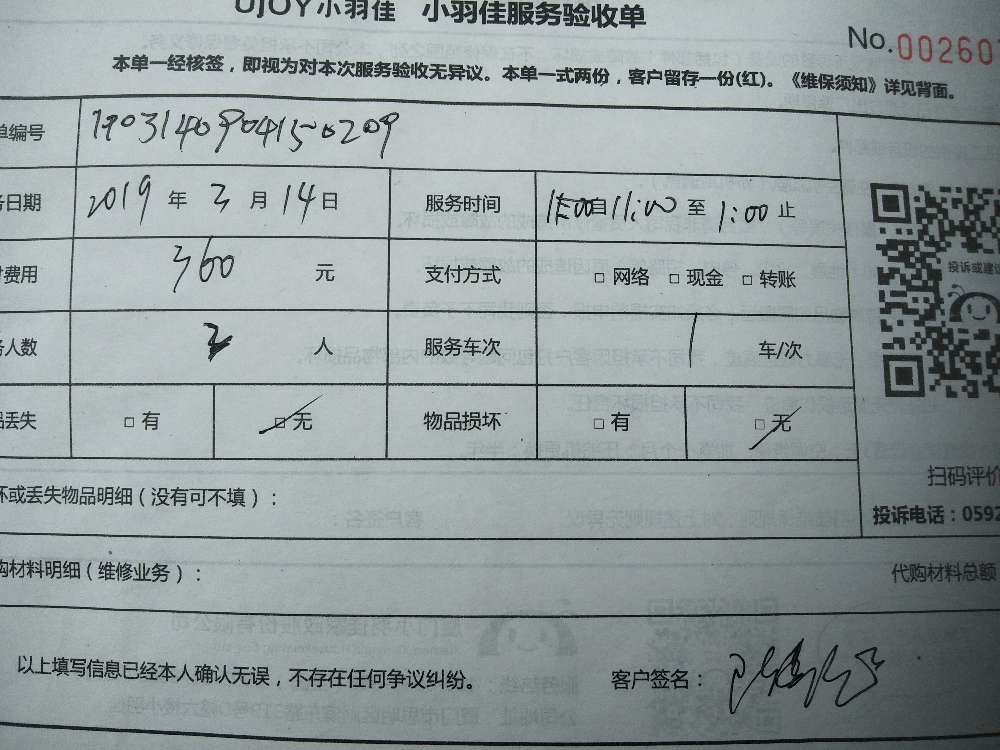 UJOY小羽佳 小羽佳服务验收单
No.00260
本单一经核签，即视为对本次服务验收无异议。本单一式两份，客户留存一份(红)。《维保须知》详见背面。
单编号 190314090415-0209
日期 2019 年 3 月 14 日 服务时间 自 11:00 至 1:00 止
费用 360 元 支付方式 □ 网络 □ 现金 □ 转账
人数 2 人 服务车次 1 车/次
丢失 □ 有 □ 无 物品损坏 □ 有 □ 无
投诉或建议
扫码评价
坏或丢失物品明细（没有可不填）：
投诉电话：0592
购材料明细（维修业务）： 代购材料总额
以上填写信息已经本人确认无误，不存在任何争议纠纷。 客户签名：